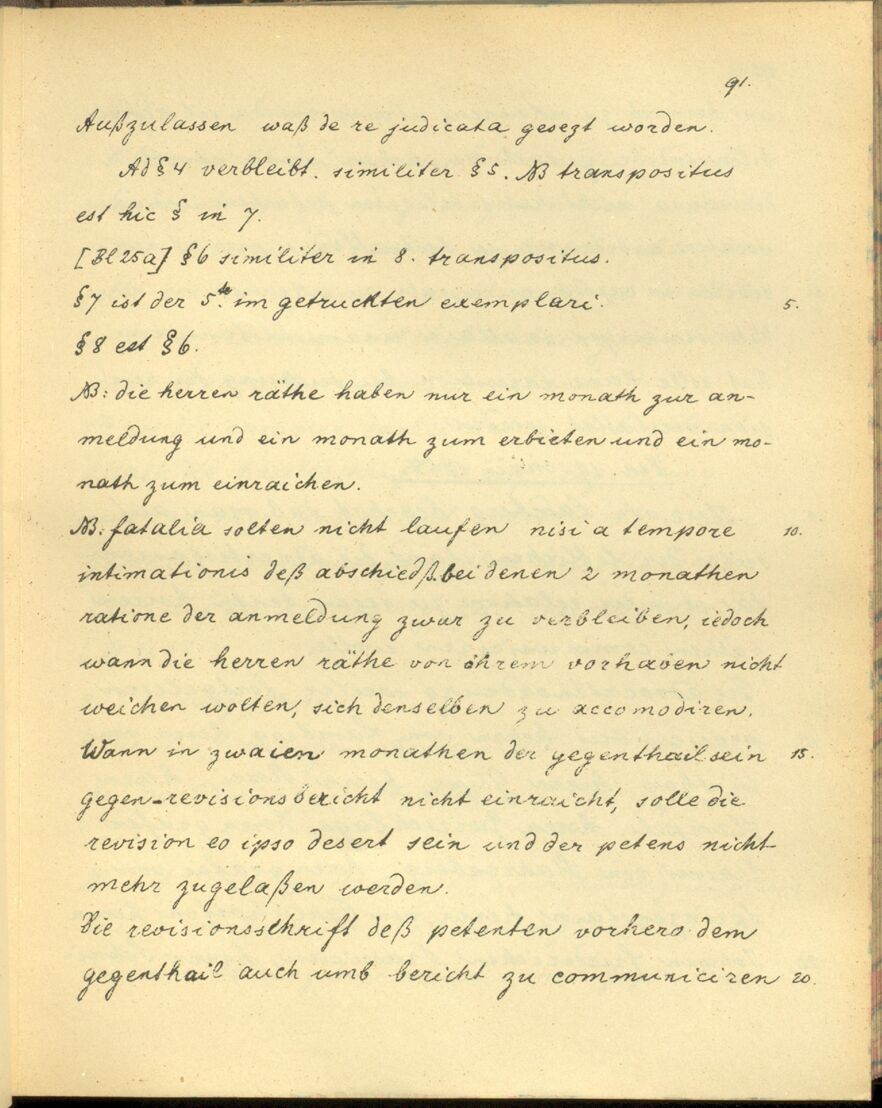 91.
Außzulassen waß de re judicata gesezt worden.
Ad § 4 verbleibt. similiter § 5. NB transpositus
est hic § in 7.
[Bl 25a] § 6 similiter in 8. transpositus.
§ 7 ist der 5te im getruckten exemplari. 5.
§ 8 est § 6.
NB: die herren räthe haben nur ein monath zur an-
meldung und ein monath zum erbieten und ein mo-
nath zum einraichen.
NB: fatalia solten nicht laufen nisi a tempore 10.
intimationis deß abschiedß. bei denen 2 monathen
ratione der anmeldung zwar zu verbleiben, iedoch
wann die herren räthe von ihrem vorhaben nicht
weichen wolten, sich denselben zu accomodiren.
Wann in zwaien monathen der gegenthail sein 15.
gegen-revisionsbericht nicht einraicht, solle die
revision eo ipso desert sein und der petens nicht
mehr zugelaßen werden.
Die revisionsschrift deß petenten vorhero dem
gegenthail auch umb bericht zu communiciren 20.